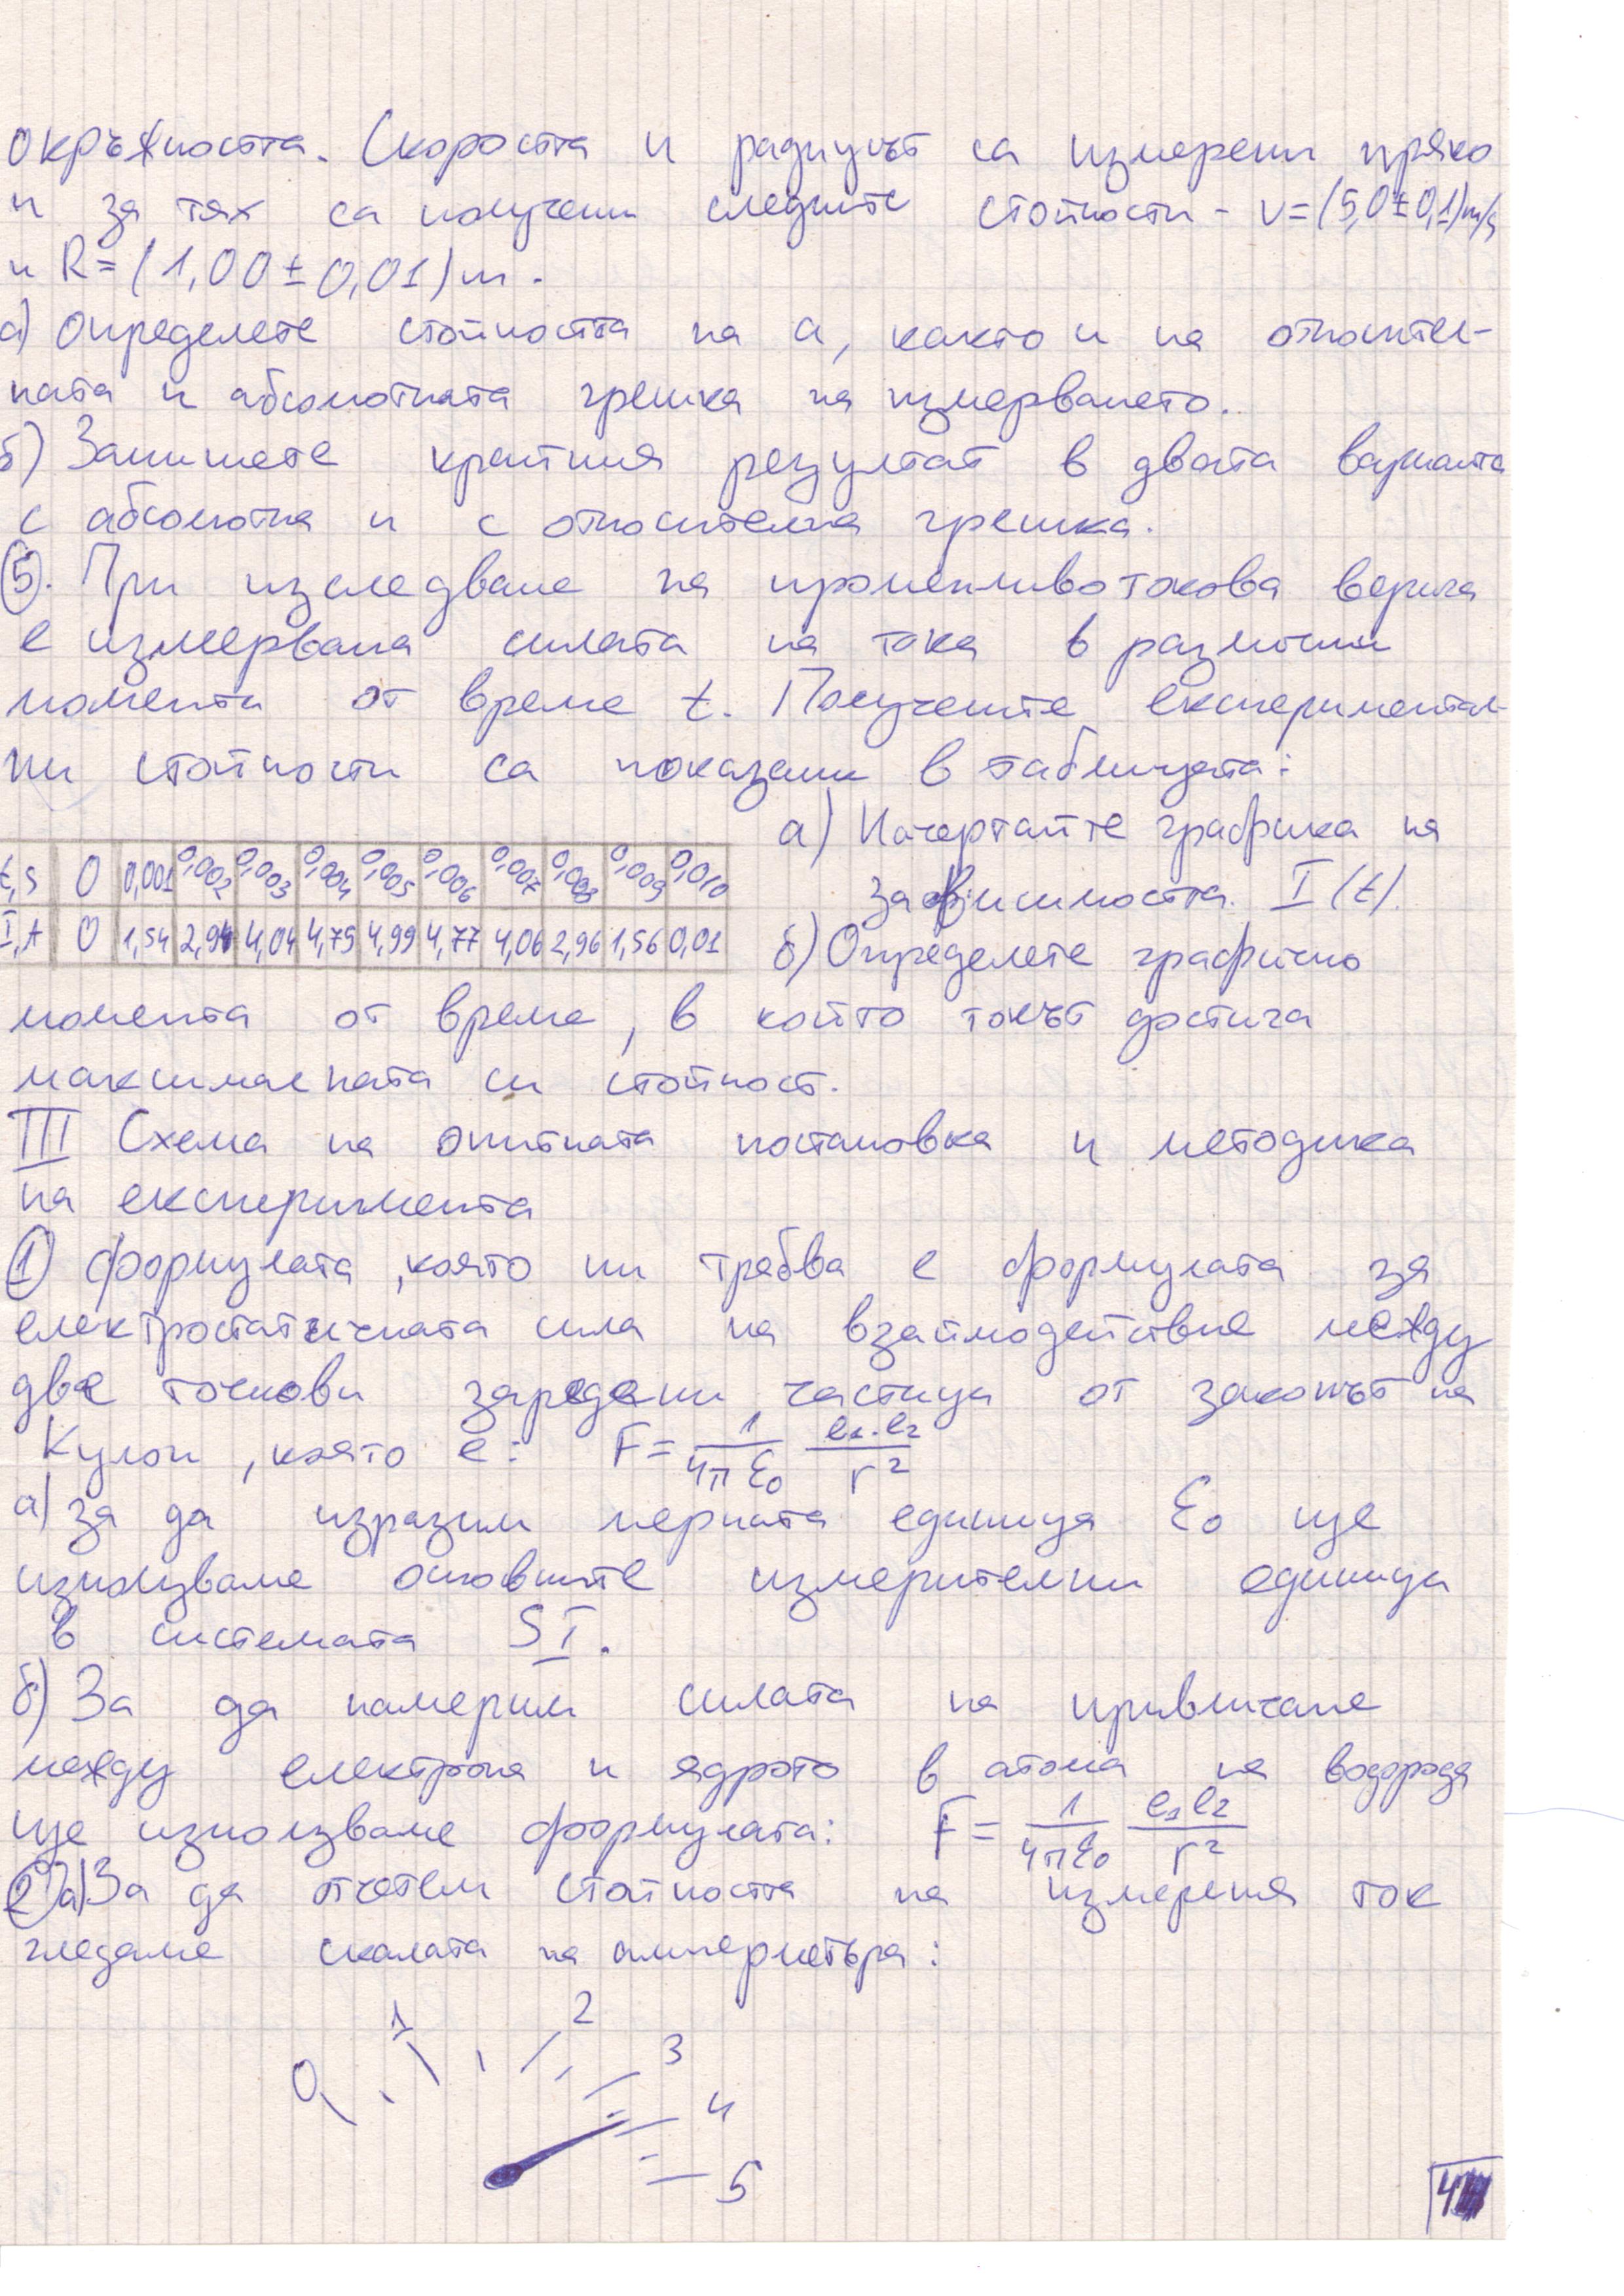 окръжността. Скоростта и радиусът са измерени пряко
и за тях са получени следните стойности - v=(5,0±0,1)m/s
и R=(1,00±0,01)m.
а) Определете стойността на a, както и на относител-
ната и абсолютната грешка на измерването.
б) Запишете крайния резултат в двата варианта
с абсолютна и с относителна грешка.
5. При изследване на променливотокова верига
е измервана силата на тока в различни
моменти от време t. Получените експериментал-
ни стойности са показани в таблицата:
а) Начертайте графика на
зависимостта I(t).
t,s 0 0,001 0,002 0,003 0,004 0,005 0,006 0,007 0,008 0,009 0,010
I,A 0 1,54 2,94 4,04 4,75 4,99 4,77 4,06 2,96 1,56 0,01
б) Определете графично
момента от време, в който токът достига
максималната си стойност.
III Схема на опитната постановка и методика
на експеримента
1 Формулата, която ни трябва е формулата за
електростатичната сила на взаимодействие между
две точкови заредени частици от законът на
Кулон, която е: F = 1/4πε₀ e₁.e₂/r²
а) За да изразим мерната единица ε₀ ще
използваме основните измерителни единици
в системата SI.
б) За да намерим силата на привличане
между електрона и ядрото в атома на водорода
ще използваме формулата: F = 1/4πε₀ e₁e₂/r²
2 а) За да отчетем стойността на измерения ток
гледаме скалата на амперметъра:
0 1 2 3 4 5
4